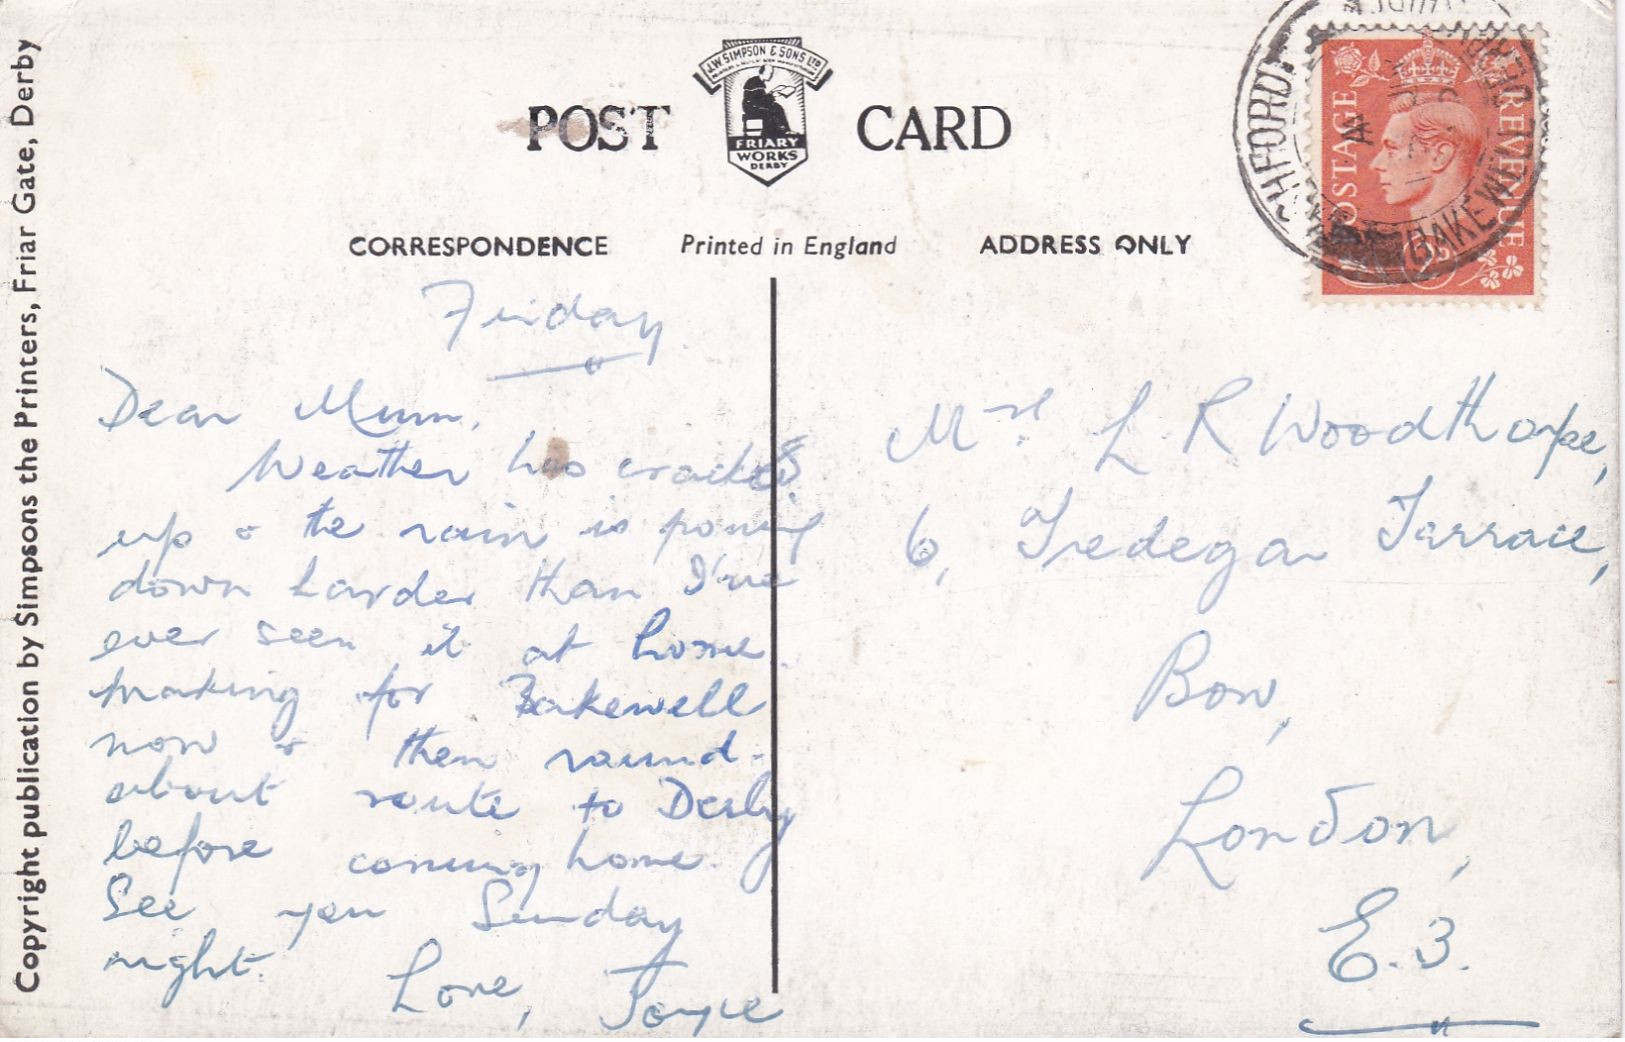 Copyright publication by Simpsons the Printers, Friar Gate, Derby
J.W. SIMPSON & SONS LTD
POST CARD
FRIARY
WORKS
DERBY
CORRESPONDENCE
Printed in England
ADDRESS ONLY
POSTAGE
REVENUE
BAKEWELL
Friday.
Dear Mum,
Weather has cracked
up & the rain is pouring
down harder than I've
ever seen it at home.
making for Bakewell
now & then round-
about route to Derby
before coming home.
See you Sunday
night.
Love, Joyce
Mrs L. R Woodthorpe,
6, Tredegar Terrace,
Bow,
London,
E.3.